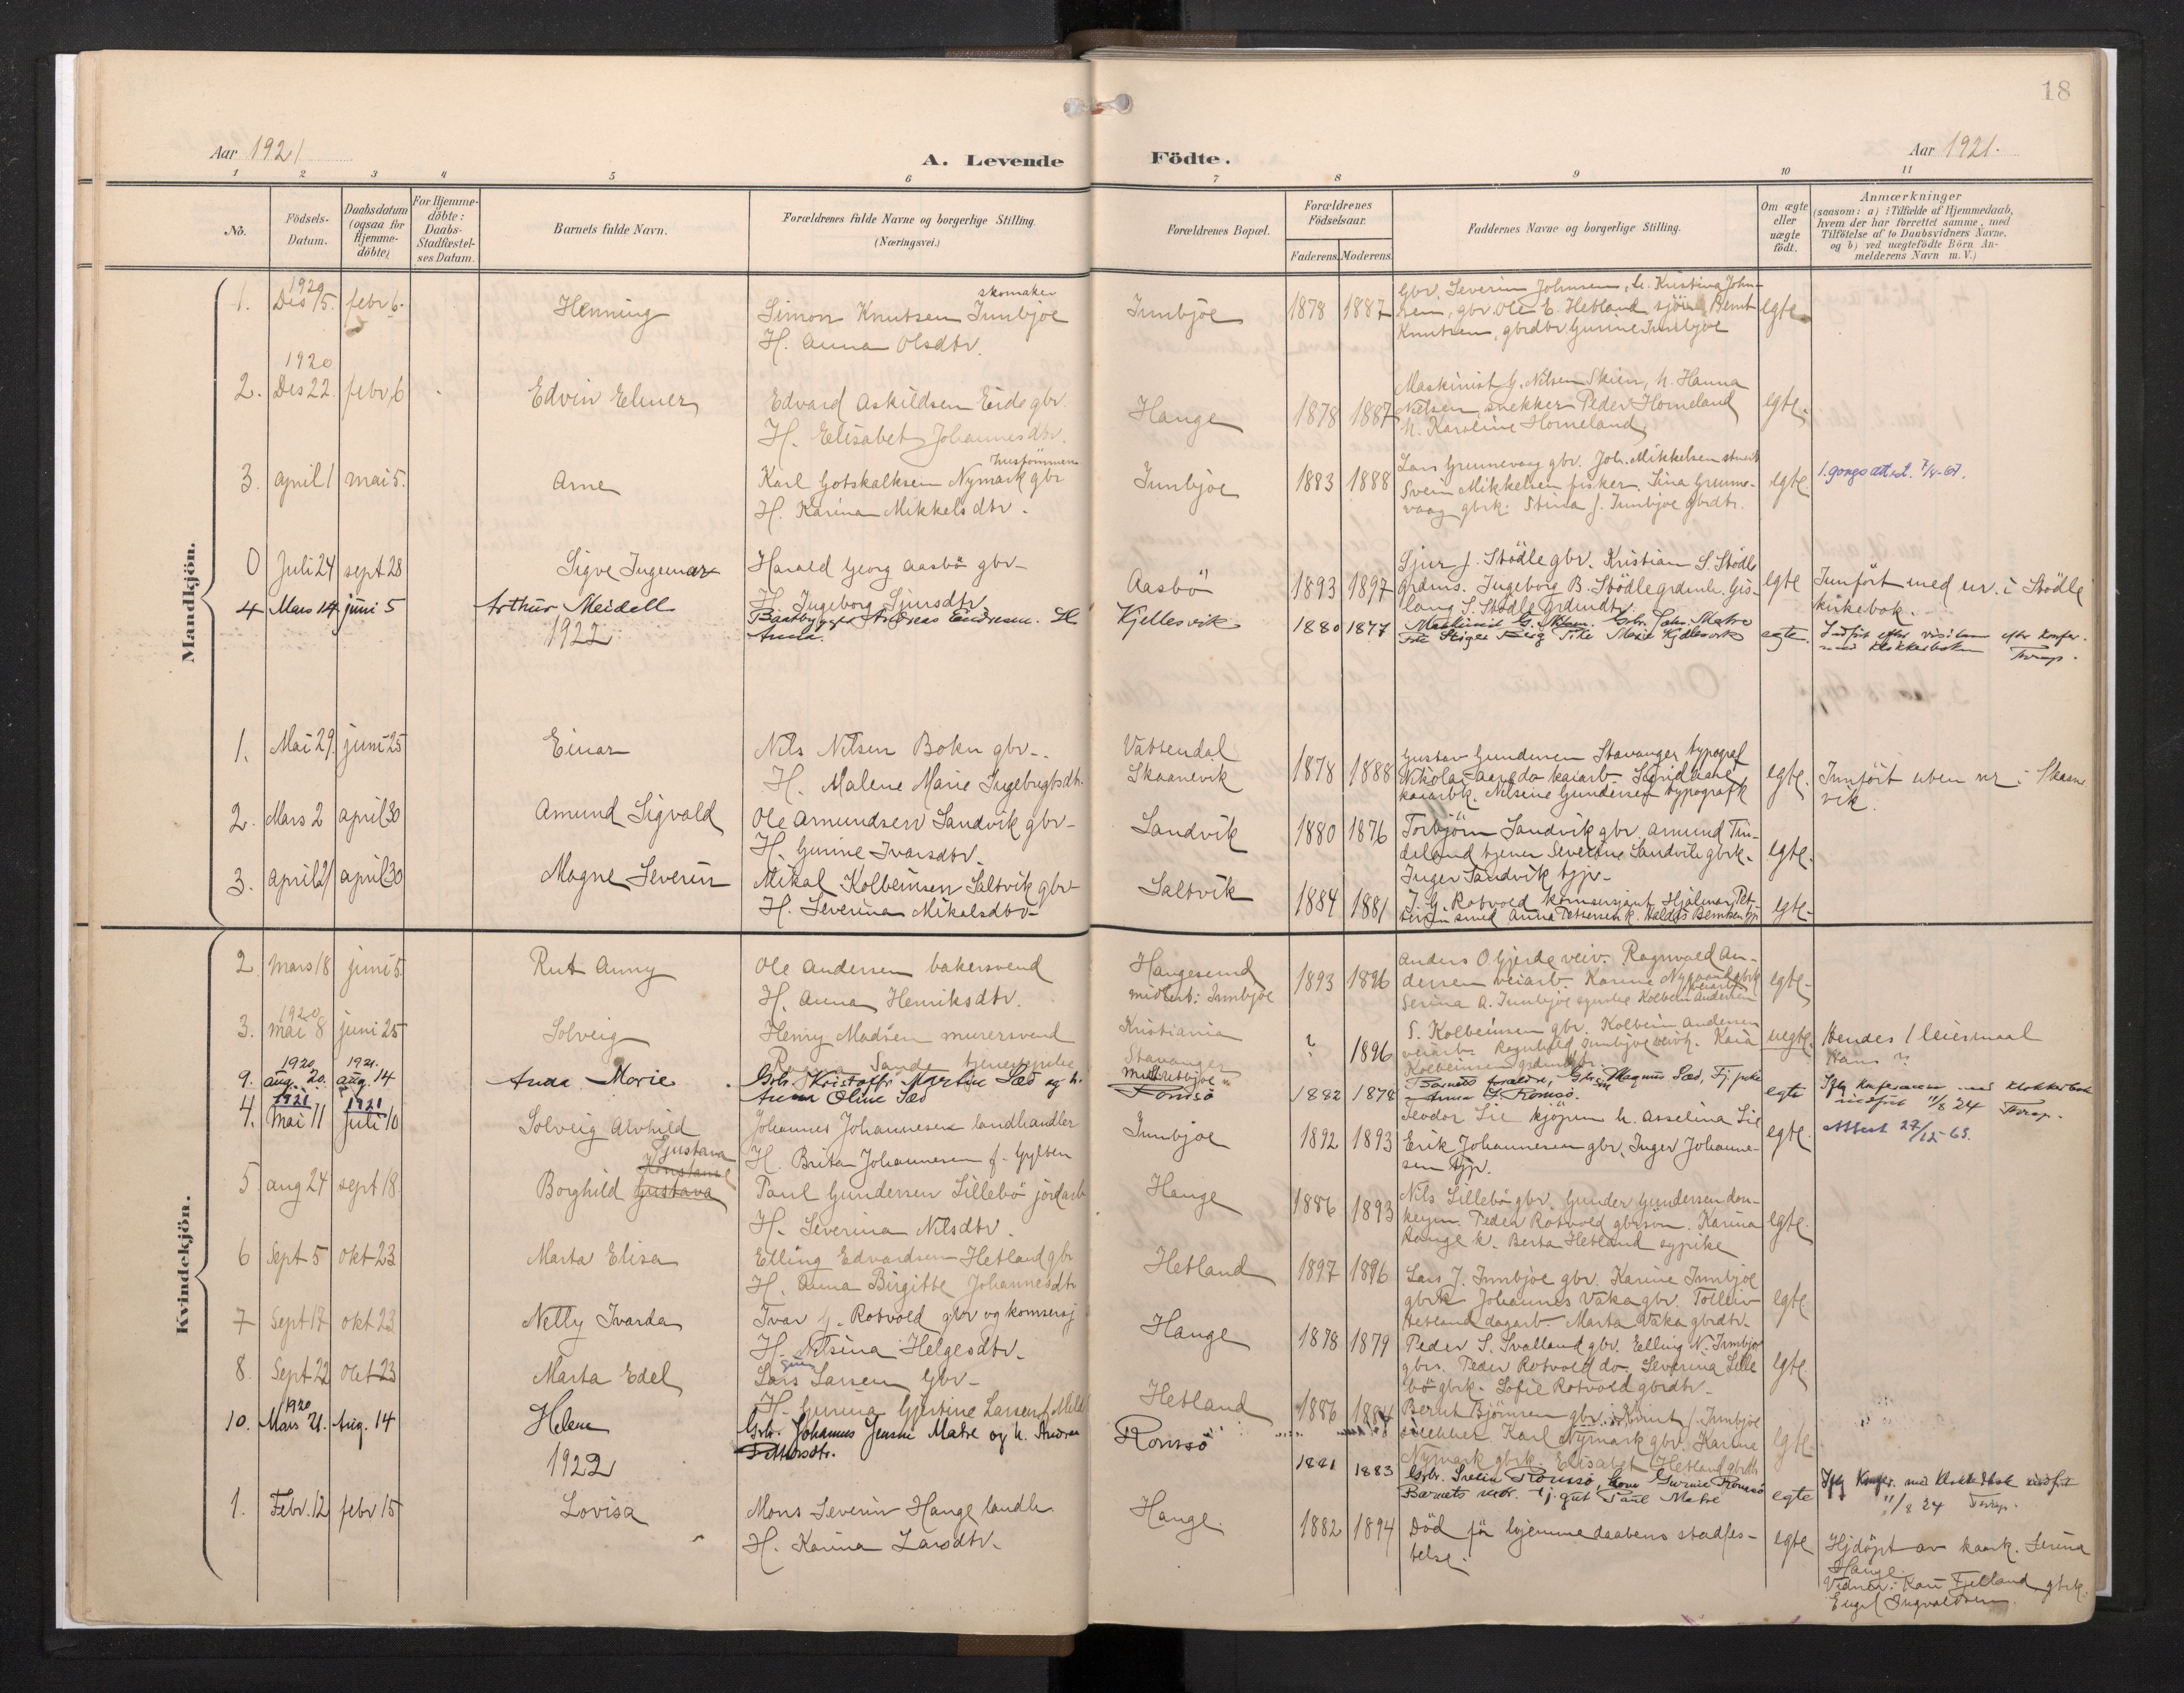 18
Aar 1921
A. Levende Födte.
Aar 1921.
1 2 3 4 5 6 7 8 9 10 11
No.
Födsels-
Datum.
Daabsdatum
(ogsaa for
Hjemme-
döbte).
For Hjemme-
döbte:
Daabs-
Stadfæstel-
ses Datum.
Barnets fulde Navn.
Forældrenes fulde Navne og borgerlige Stilling.
(Næringsvei.)
Forældrenes Bopæl.
Forældrenes
Födselsaar.
Faderens. Moderens.
Faddernes Navne og borgerlige Stilling.
Om ægte
eller
uægte
födt.
Anmærkninger
(saasom: a) i Tilfælde af Hjemmedaab,
hvem der har forrettet samme, med
Tilföielse af to Daabsvidners Navne,
og b) ved uægtefödte Börn An-
melderens Navn m. V.)
Mandkjön.
1. 1920 Des 15. febr 6. Henning
skomaker
Simon Knutsen Innbjoe
H. Anna Olsdtr.
Innbjoe 1878 1887
Gbr. Severin Johnsen, h. Kristina John-
sen, gbr. Ole E. Hetland sjöm. Bernt
Knutsen, gbrdtr Gunine Innbjoe
egte
2. 1920 Des 22. febr 6 Edvin Elmer
Edvard Askildsen Eide gbr
H. Elisabet Johannesdtr.
Hange 1878 1887
Maskinist G. Nilsen Skien, h. Hanna
Nilsen, snekker Peder Homeland
h. Karoline Homeland
egte.
3. april 1 mai 5. Arne
Karl Gotskalksen Nymark gbr
H. Karina Mikkelsdtr.
Innbjoe 1883 1888
Lars Grunnevaag gbr. Joh. Mikkelsen
Svein Mikkelsen fisker. Sina Grunne-
vaag gbrk. Stina J. Innbjoe gbrdtr.
egte
0 Juli 24 sept 28 Sigve Ingemar
Harald Georg Aasbö gbr-
H. Ingeborg Sjursdtr.
Aasbö 1893 1897
Sjur J. Stödle gbr. Kristian S. Stödle
grdms. Ingeborg B. Stödle grdmk. Gis-
laug S. Stödle grdmdtr.
egte
Innfört med nr. i Stödle
kirkebok.
4 Mars 14 juni 5 Arthur Meidell
Baatbygger Andreas Endresen. H
Anna.
Kjellesvik 1880 1877
Maskinist G. Nilsen. Gbr. Johs. Matre
egte.
Indfört efter visitasen efter Konfer.
med klokkerboken
1922
1. Mai 29. juni 25 Einar
Nils Nilsen Bokn gbr-.
H. Malene Marie Ingebrigtsdtr.
Vattendal
Skaanevik 1878 1888
Gustav Gundersen Stavanger typograf
Nikolai Aane do kaiarb. Sigrid Aane
kaiarbk. Nilsine Gundersen typografk
egte.
Innfört uten nr i Skaane
vik.
2. Mars 2 april 30 Amund Sigvald
Ole Amundsen Sandvik gbr-
H. Gurine Ivarsdtr.
Sandvik 1880 1876
Torbjörn Sandvik gbr. Amund Tin-
deland tjener Severine Sandvik gbrk.
Inger Sandvik tjp-
egte.
3. april 21 april 30 Magne Severin
Mikal Kolbeinsen Saltvik gbr-
H. Severina Mikalsdtr-
Saltvik 1884 1881
I. G. Rotvold komsersjant Hjalmar Pet-
tersen smed Anna Petersen k. Haldis Berntsen tjp
egte-
Kvindekjön.
2 mars 18 juni 5 Rut Anny
Ole Andersen bakersvend
H. Anna Henriksdtr.
Haugesund
midlert: Innbjoe 1893 1896
Anders O Gjerde veiv. Ragnvald An-
dersen veiarb. Karine Nygaard
Serina A. Innbjoe Kolbein Andersen
egte-
3. 1920 mai 8 juni 25 Solveig
Henry Madsen murersvend
Sande tjenestpike
Kristiania
Stavanger
? 1896
S. Kolbeinsen gbr. Kolbein Andersen
veiarb. Ragnhild Innbjoe Kaia
Kolbeinsen
uegte.
Hendes 1 leiermaal
Hans ?
9. 1920 aug. 20. 1921. aug. 14 Anda Marie
Gbr. Kristoffr Martin Sæd og h.
Anna Oline Sæd
Romsö 1882 1878
Barnets foreldre, Gbr. Magnus Sæd, Tj.pike
Anna Romsö.
egte
Ifg Konferanse med Klokkerbok
indfört 11/8 24
4. 1921 mai 11 1921 Juli 10 Solveig Alvhild
Johannes Johannesen landhandler
H. Brita Johannesen f. Gylten
Innbjoe 1892 1893
Teodor Lie kjöpm h. Asselina Lie
Erik Johannesen gbr, Inger Johanne-
sen tjp.
egte.
Attest 27/12-63.
5 aug 24 sept 18 Borghild Gustava
Gjustava
Konstanse
Paul Gundersen Lillebö jordarb
H. Severina Nilsdtr.
Hange 1886 1893
Nils Lillebö gbr. Gunder Gundersen don-
keym. Peder Rotvold gbrsön. Karina
Hange k. Berta Hetland sypike
egte.
6 Sept 5 okt 23 Marta Elisa
Elling Edvardsen Hetland gbr
H. Anna Birgitte Johannesdtr
Hetland 1897 1896
Lars J. Innbjoe gbr. Karine Innbjoe
gbrk Johannes Vaka gbr. Tolleiv
Hetland dagarb Marta Vaka gbrdtr.
egte
7 Sept 17 okt 23 Nelly Ivarda
Ivar J. Rotvold gbr og komsersj
H. Nilsina Helgesdtr.
Hange 1878 1879
Peder S. Svalland gbr. Elling N. Innbjoe
gbrs. Peder Rotvold do. Severina Lille
bö gbrk. Sofie Rotvold gbrdtr-
egte
8. Sept 22 okt 23 Marta Edel
Lars Larsen Gbr-
H. Gurina Gjertine Larsen f.
Hetland 1886 1884
Bernt Björnsen gbr. Knut J. Innbjoe
snekker Karl Nymark gbr. Karina
Nymark gbrk. Elisabet Hetland gbrdtr
egte.
10. 1920 Mars 21. Aug. 14 Helene
Gbr. Johannes Jensen Matre og h. Andrea
Pettersdtr.
Romsö 1881 1883
Gbr. Svein Romsö, kone Gurine Romsö
Barnets mor. tj.gut Paul Matre
egte
Ifg Konfer. med Klokkerbok indfört
11/8 24
1922
1. Febr. 12 febr 15 Lovisa
Mons Severin Hange landh
H. Karina Larsdtr.
Hange. 1882 1894
Död för hjemmedaabens stadfes-
telse.
egte
Hjdöpt av kaark. Serina
Hange.
Vidner: Kari Fjelland gbrk.
Engel Ingvaldsen.